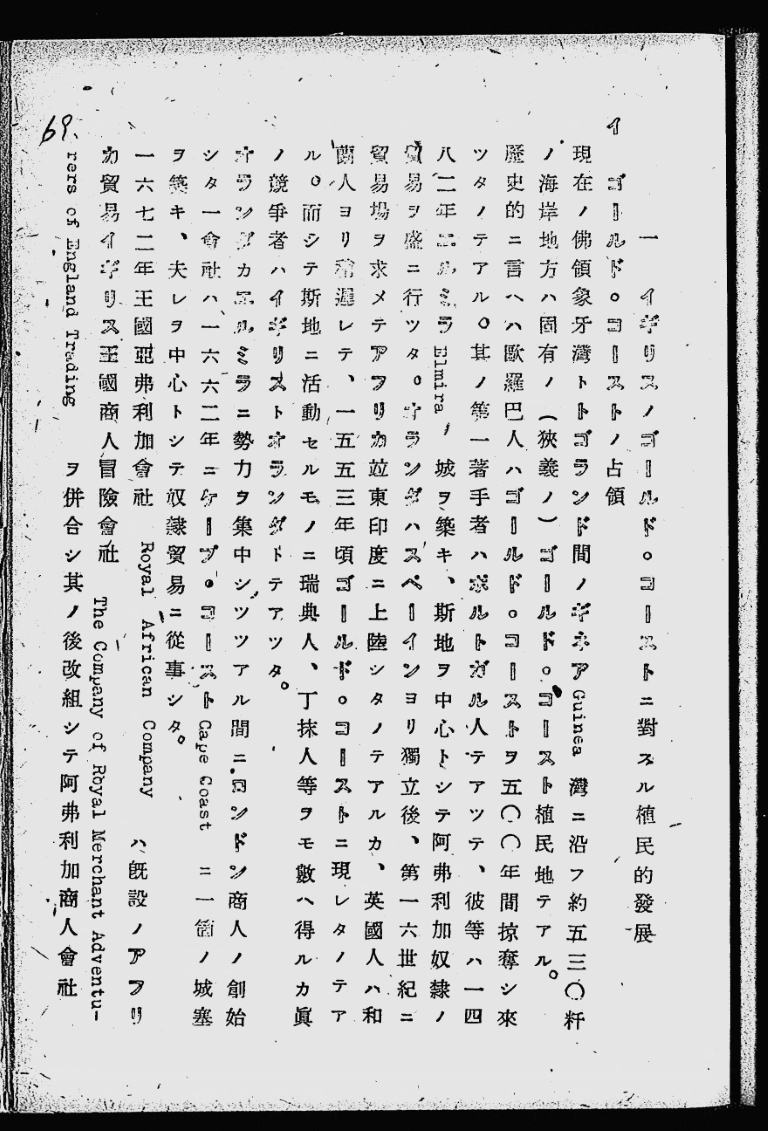 一　イギリスノゴールド。コーストニ對スル植民的發展
イ　ゴールド。コーストノ占領
現在ノ佛領象牙灣トトゴランド間ノギネア Guinea 灣ニ沿フ約五三〇粁
ノ海岸地方ハ固有ノ（狹義ノ）ゴールド。コースト植民地テアル。
歷史的ニ言ヘハ歐羅巴人ハゴールド。コーストヲ五〇〇年間掠奪シ來
ツタノテアル。其ノ第一著手者ハポルトガル人テアツテ、彼等ハ一四
八二年エルミラ Elmira 城ヲ築キ、斯地ヲ中心トシテ阿弗利加奴隸ノ
貿易ヲ盛ニ行ツタ。オランダハスペーインヨリ獨立後、第一六世紀ニ
貿易場ヲ求メテアフリカ竝東印度ニ上陸シタノテアルカ、英國人ハ和
蘭人ヨリ稍遲レテ、一五五三年頃ゴールド。コーストニ現レタノテア
ル。而シテ斯地ニ活動セルモノニ瑞典人、丁抹人等ヲモ數ヘ得ルカ眞
ノ競爭者ハイギリストオランダトテアツタ。
オランダカエルミラニ勢力ヲ集中シツツアル間ニロンドン商人ノ創始
シタ一會社ハ一六六二年ニケープ。コースト Cape Coast ニ一箇ノ城塞
ヲ築キ、夫レヲ中心トシテ奴隸貿易ニ從事シタ。
一六七二年王國亞弗利加會社 Royal African Company ハ旣設ノアフリ
カ貿易イギリス王國商人冒險會社 The Company of Royal Merchant Adventu-
rers of England Trading ヲ併合シ其ノ後改組シテ阿弗利加商人會社
69.